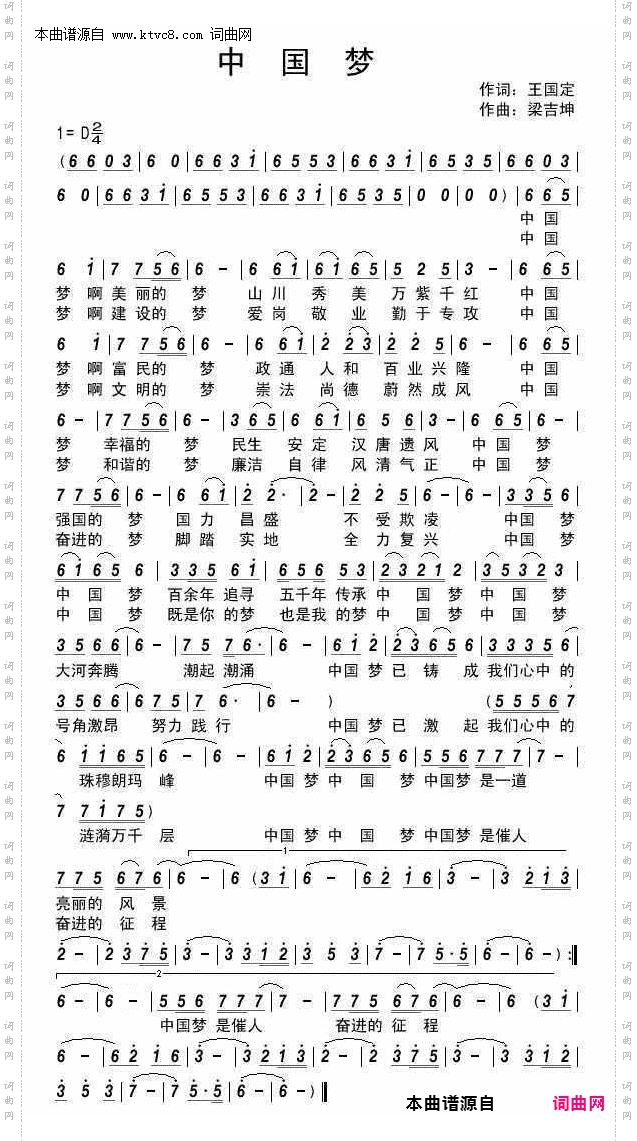 本曲谱源自 www.ktvc8.com 词曲网
中 国 梦
作词：王国定
作曲：梁吉坤
1= D 2/4
(6 6 0 3 | 6 0 | 6 6 3 i | 6 5 5 3 | 6 6 3 i | 6 5 3 5 | 6 6 0 3 |
6 0 | 6 6 3 i | 6 5 5 3 | 6 6 3 i | 6 5 3 5 | 0 0 | 0 0 ) | 6 6 5 |
中 国
中 国
6 i | 7 7 5 6 | 6 - | 6 6 i | 6 i 6 5 | 5 2 5 | 3 - | 6 6 5 |
梦 啊 美 丽的 梦 山 川 秀 美 万 紫 千 红 中 国
梦 啊 建 设的 梦 爱 岗 敬 业 勤 于 专 攻 中 国
6 i | 7 7 5 6 | 6 - | 6 6 i | 2 2 3 | 2 2 i | 2 - | 6 6 5 |
梦 啊 富 民的 梦 政 通 人 和 百 业 兴 隆 中 国
梦 啊 文 明的 梦 崇 法 尚 德 蔚 然 成 风 中 国
6 - | 7 7 5 6 | 6 - | 3 6 5 | 6 6 i | 6 5 6 | 3 - | 6 6 5 | 6 - |
梦 幸福的 梦 民生 安 定 汉 唐 遗 风 中 国 梦
梦 和谐的 梦 廉洁 自 律 风 清 气 正 中 国 梦
7 7 5 6 | 6 - | 6 6 i | 2 2 · | 2 - | 2 2 i | 6 - | 6 - | 3 3 5 6 |
强国的 梦 国 力 昌 盛 不 受 欺 凌 中国 梦
奋进的 梦 脚 踏 实 地 全 力 复 兴 中国 梦
6 i 6 5 6 | 3 3 5 6 i | 6 5 6 5 3 | 2 3 2 1 2 | 3 5 3 2 3 |
中 国 梦 百余年 追寻 五千年 传承 中 国 梦 中 国 梦
中 国 梦 既是你 的梦 也是我 的梦 中 国 梦 中 国 梦
3 5 6 6 | 6 - | 7 5 7 6 · | 6 - | 6 i 2 | 2 3 6 5 | 5 6 5 6 7 |
大河奔腾 潮起 潮涌 中国 梦 已 铸 成 我们 心中 的
3 5 6 6 | 6 7 5 | 7 6 · | 6 - ) (5 5 5 6 7
号角激昂 努力 践 行 中国 梦 已 激 起 我们 心中 的
6 i i 6 5 | 6 - | 6 - | 6 i 2 | 2 3 6 5 6 | 5 5 6 7 7 7 | 7 - |
珠穆朗玛 峰 中国 梦 中 国 梦 中国梦 是一道
7 7 i 7 5 )
涟漪万千 层 中国 梦 中 国 梦 中国梦 是催人
1
7 7 5 6 7 6 | 6 - | 6 (3 i | 6 - | 6 - | 6 2 i 6 | 3 - | 3 3 2 i 3 |
亮丽的 风 景
奋进的 征 程
2 - | 2 3 7 5 | 3 - | 3 3 1 2 | 3 5 3 | 7 - | 7 5 · 5 | 6 - | 6 - ) :‖
2
6 - | 6 - | 5 5 6 7 7 7 | 7 - | 7 7 5 6 7 6 | 6 - | 6 (3 i |
中国梦 是催人 奋进的 征 程
6 - | 6 2 i 6 | 3 - | 3 2 1 3 | 2 - | 2 3 7 5 | 3 - | 3 3 1 2 |
3 5 3 | 7 - | 7 5 · 5 | 6 - | 6 - ) ‖
本曲谱源自 词曲网